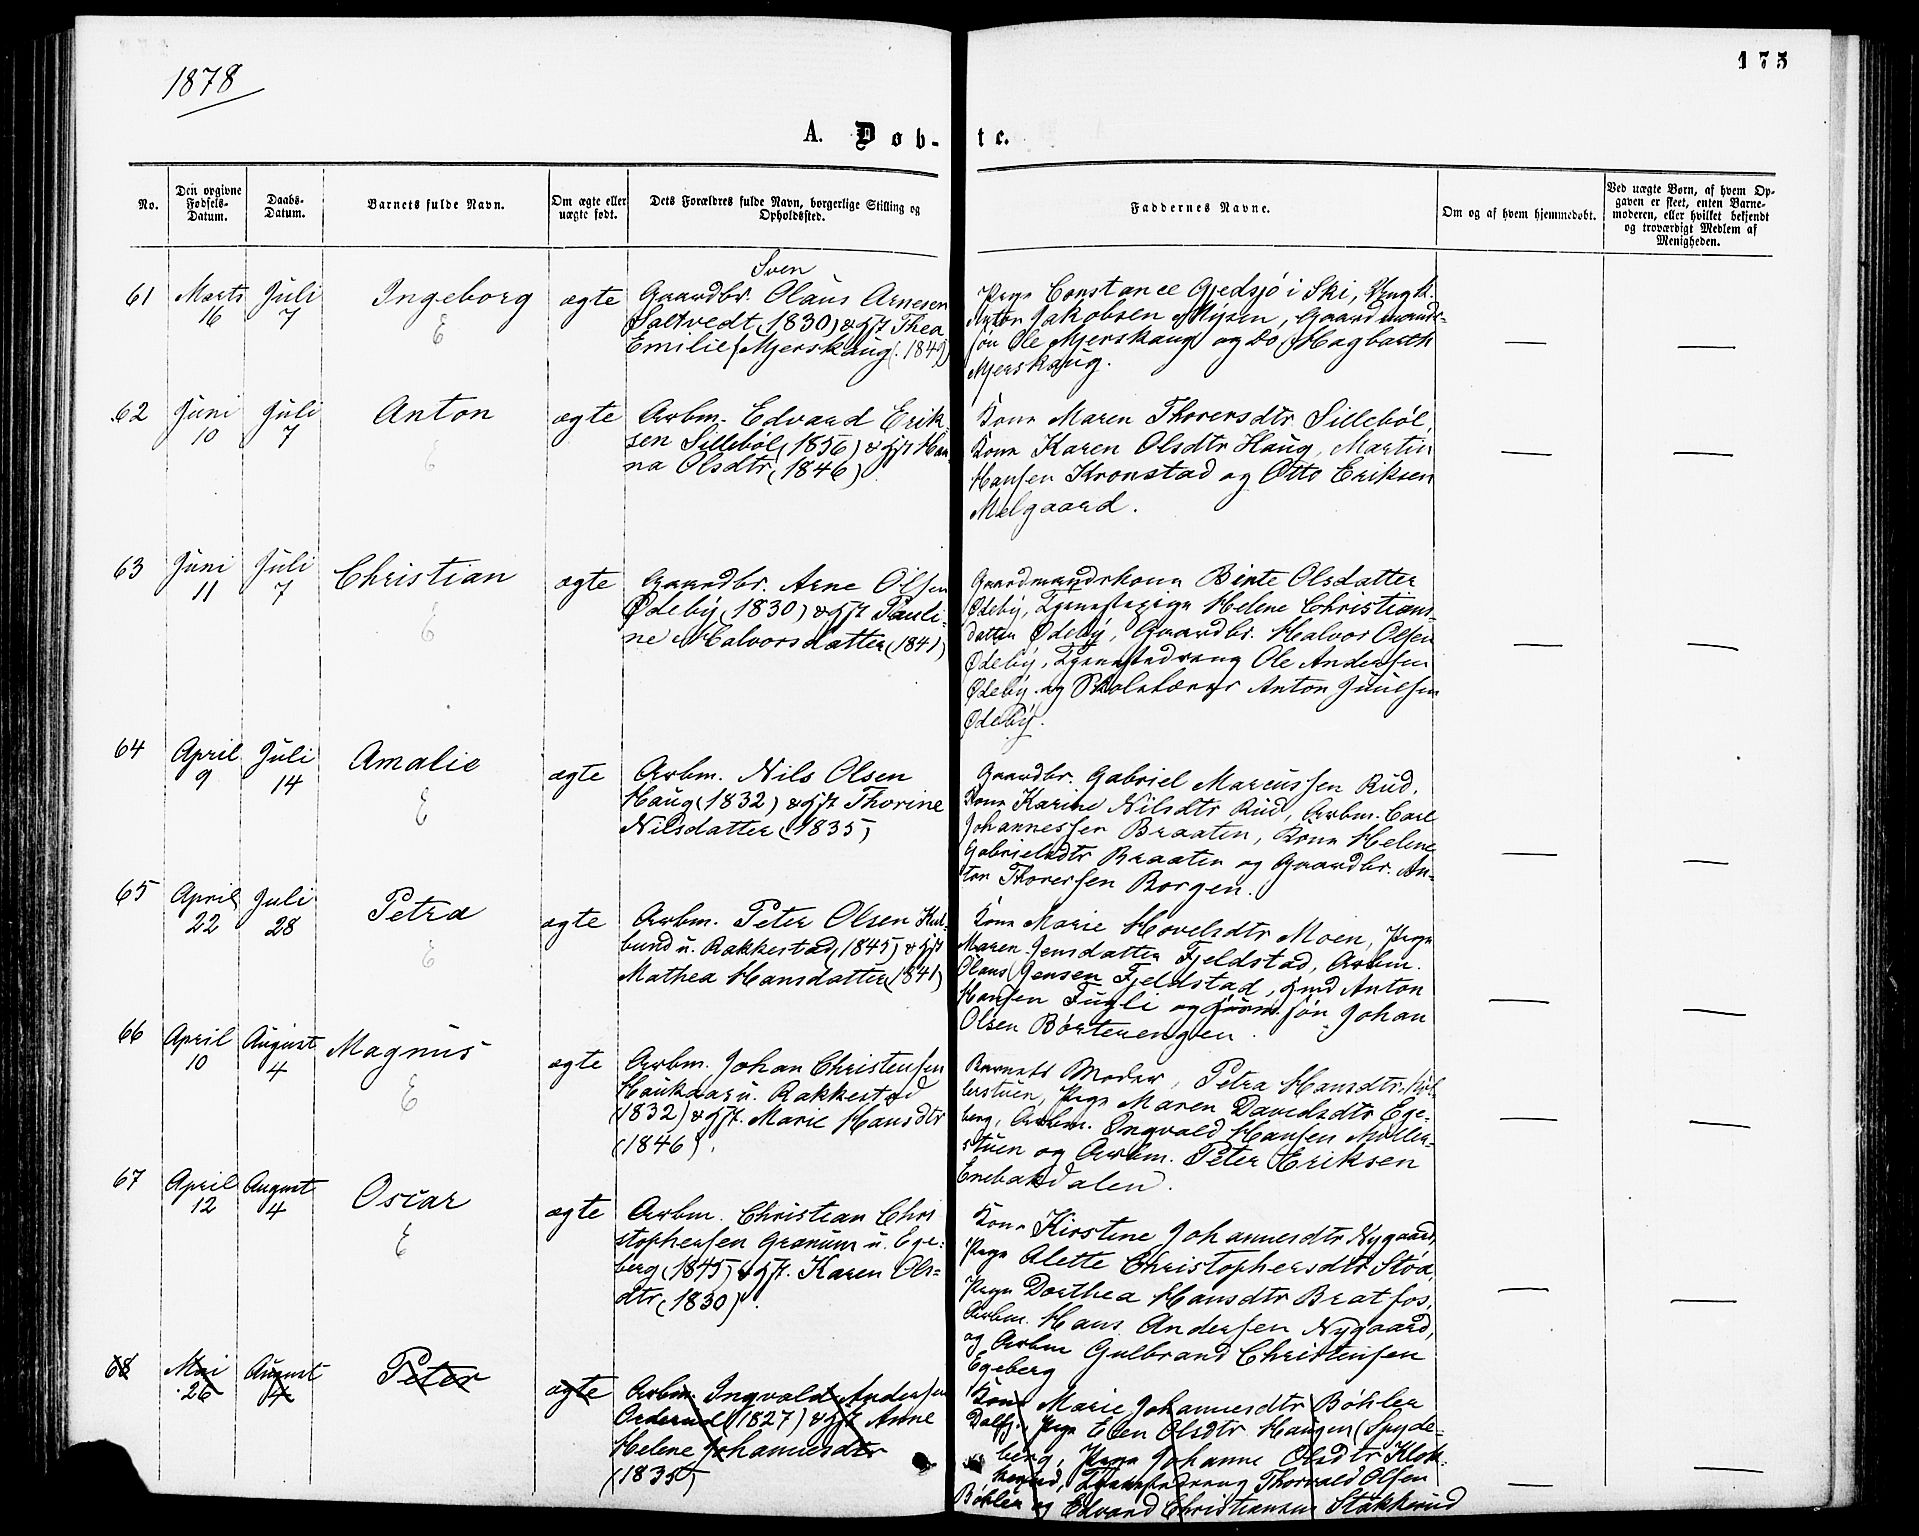 1878
175
A. Døb-
te.
No.
Den opgivne
Fødsels-
Datum.
Daabs-
Datum.
Barnets fulde Navn.
Om ægte eller
uægte født.
Dets Forældres fulde Navn, borgerlige Stilling og
Opholdssted.
Faddernes Navne.
Om og af hvem hjemmedøbt.
Ved uægte Børn, af hvem Op-
gaven er skeet, enten Barne-
moderen, eller hvilket bekjendt
og troværdigt Medlem af
Menigheden.
61
Marts
16
Juli
7
Ingeborg
E
ægte
Sven
Gaardbr. Olaus Arnesen
Saltvedt (1830) & Hst Thea
Emilie Mjerskaug (1849)
Pige Constance Gjedsjö i Ski, Ungk.
Anton Jakobsen Mysen, Gaardmands-
søn Ole Mjerskaug og Do, Hagbarth
Mjerskaug.
62
Juni
10
Juli
7
Anton
E
ægte
Arbm. Edvard Erik-
sen Silleböl (1856) & Hst Han-
na Olsdtr (1846)
Kone Maren Thorersdtr Silleböl,
Kone Karen Olsdtr Haug, Martin
Hansen Kronstad og Otto Eriksen
Melgaard.
63
Juni
11
Juli
7
Christian
E
ægte
Gaardbr. Arne Olsen
Ødeby (1830) & Hst Pauli-
ne Halvorsdatter (1841)
Gaardmandskone Birte Olsdatter
Ødeby, Tjenestepige Helene Christians-
datter Ødeby, Gaardbr. Halvor Olsen
Ødeby, Tjenestedreng Ole Andersen
Ødeby og Skolelærer Anton Juulsen
Ødeby.
64
April
9
Juli
14
Amalie
E
ægte
Arbm. Nils Olsen
Haug (1832) & Hst Thorine
Nilsdatter (1835)
Gaardbr. Gabriel Marcussen Rud,
Kone Karine Nilsdtr Rud, Arbm. Carl
Johannessen Braaten, Kone Helene
Gabrielsdtr Braaten og Gaardbr. An-
ton Thoresen Borgen.
65
April
22
Juli
28
Petra
E
ægte
Arbm. Peter Olsen
bund u. Rakkestad (1845) & Hst
Mathea Hansdatter (1841)
Kone Marie Hovelsdtr Moen, Pige
Maren Jensdatter Fjeldstad, Arbm.
Olaus Jensen Fjeldstad, Anton
Hansen Fugli og søn Johan
Olsen Börterengen.
66
April
10
August
4
Magnus
E
ægte
Arbm. Johan Christensen
Haukaas u. Rakkestad
(1832) & Hst. Marie Hansdtr
(1846).
Barnets Moder, Petra Hansdtr
lerstuen, Pige Maren Davidsdtr Ege-
berg, Arbm. Ingvald Hansen Möller-
stuen og Arbm. Peter Eriksen
Enebakdalen.
67
April
12
August
4
Oscar
E
ægte
Arbm. Christian Chri
stophersen Grønum u. Ege-
berg (1845) & Hst. Karen Ols-
dtr (1830).
Kone Kirstine Johannesdtr Nygaard,
Pige Alette Christophersdtr Stöa,
Pige Dorthea Hansdtr Bratfos,
Arbm. Hans Andersen Nygaard,
og Arbm Gulbrand Christensen
Egeberg
68
Mai
26
August
4
Peter
ægte
Arbm. Ingvald Andersen
Orderud (1827) & Hst Anne
Helene Johannesdtr
(1835)
Kone Marie Johannesdtr Böhler
Pige Ellen Olsdtr Haugen (Spyde-
berg, Pige Johanne Olsdtr Klok-
kerud, Tjenestedreng Thorvald Olsen
Böhler og Edvard Christiansen Stakkerud